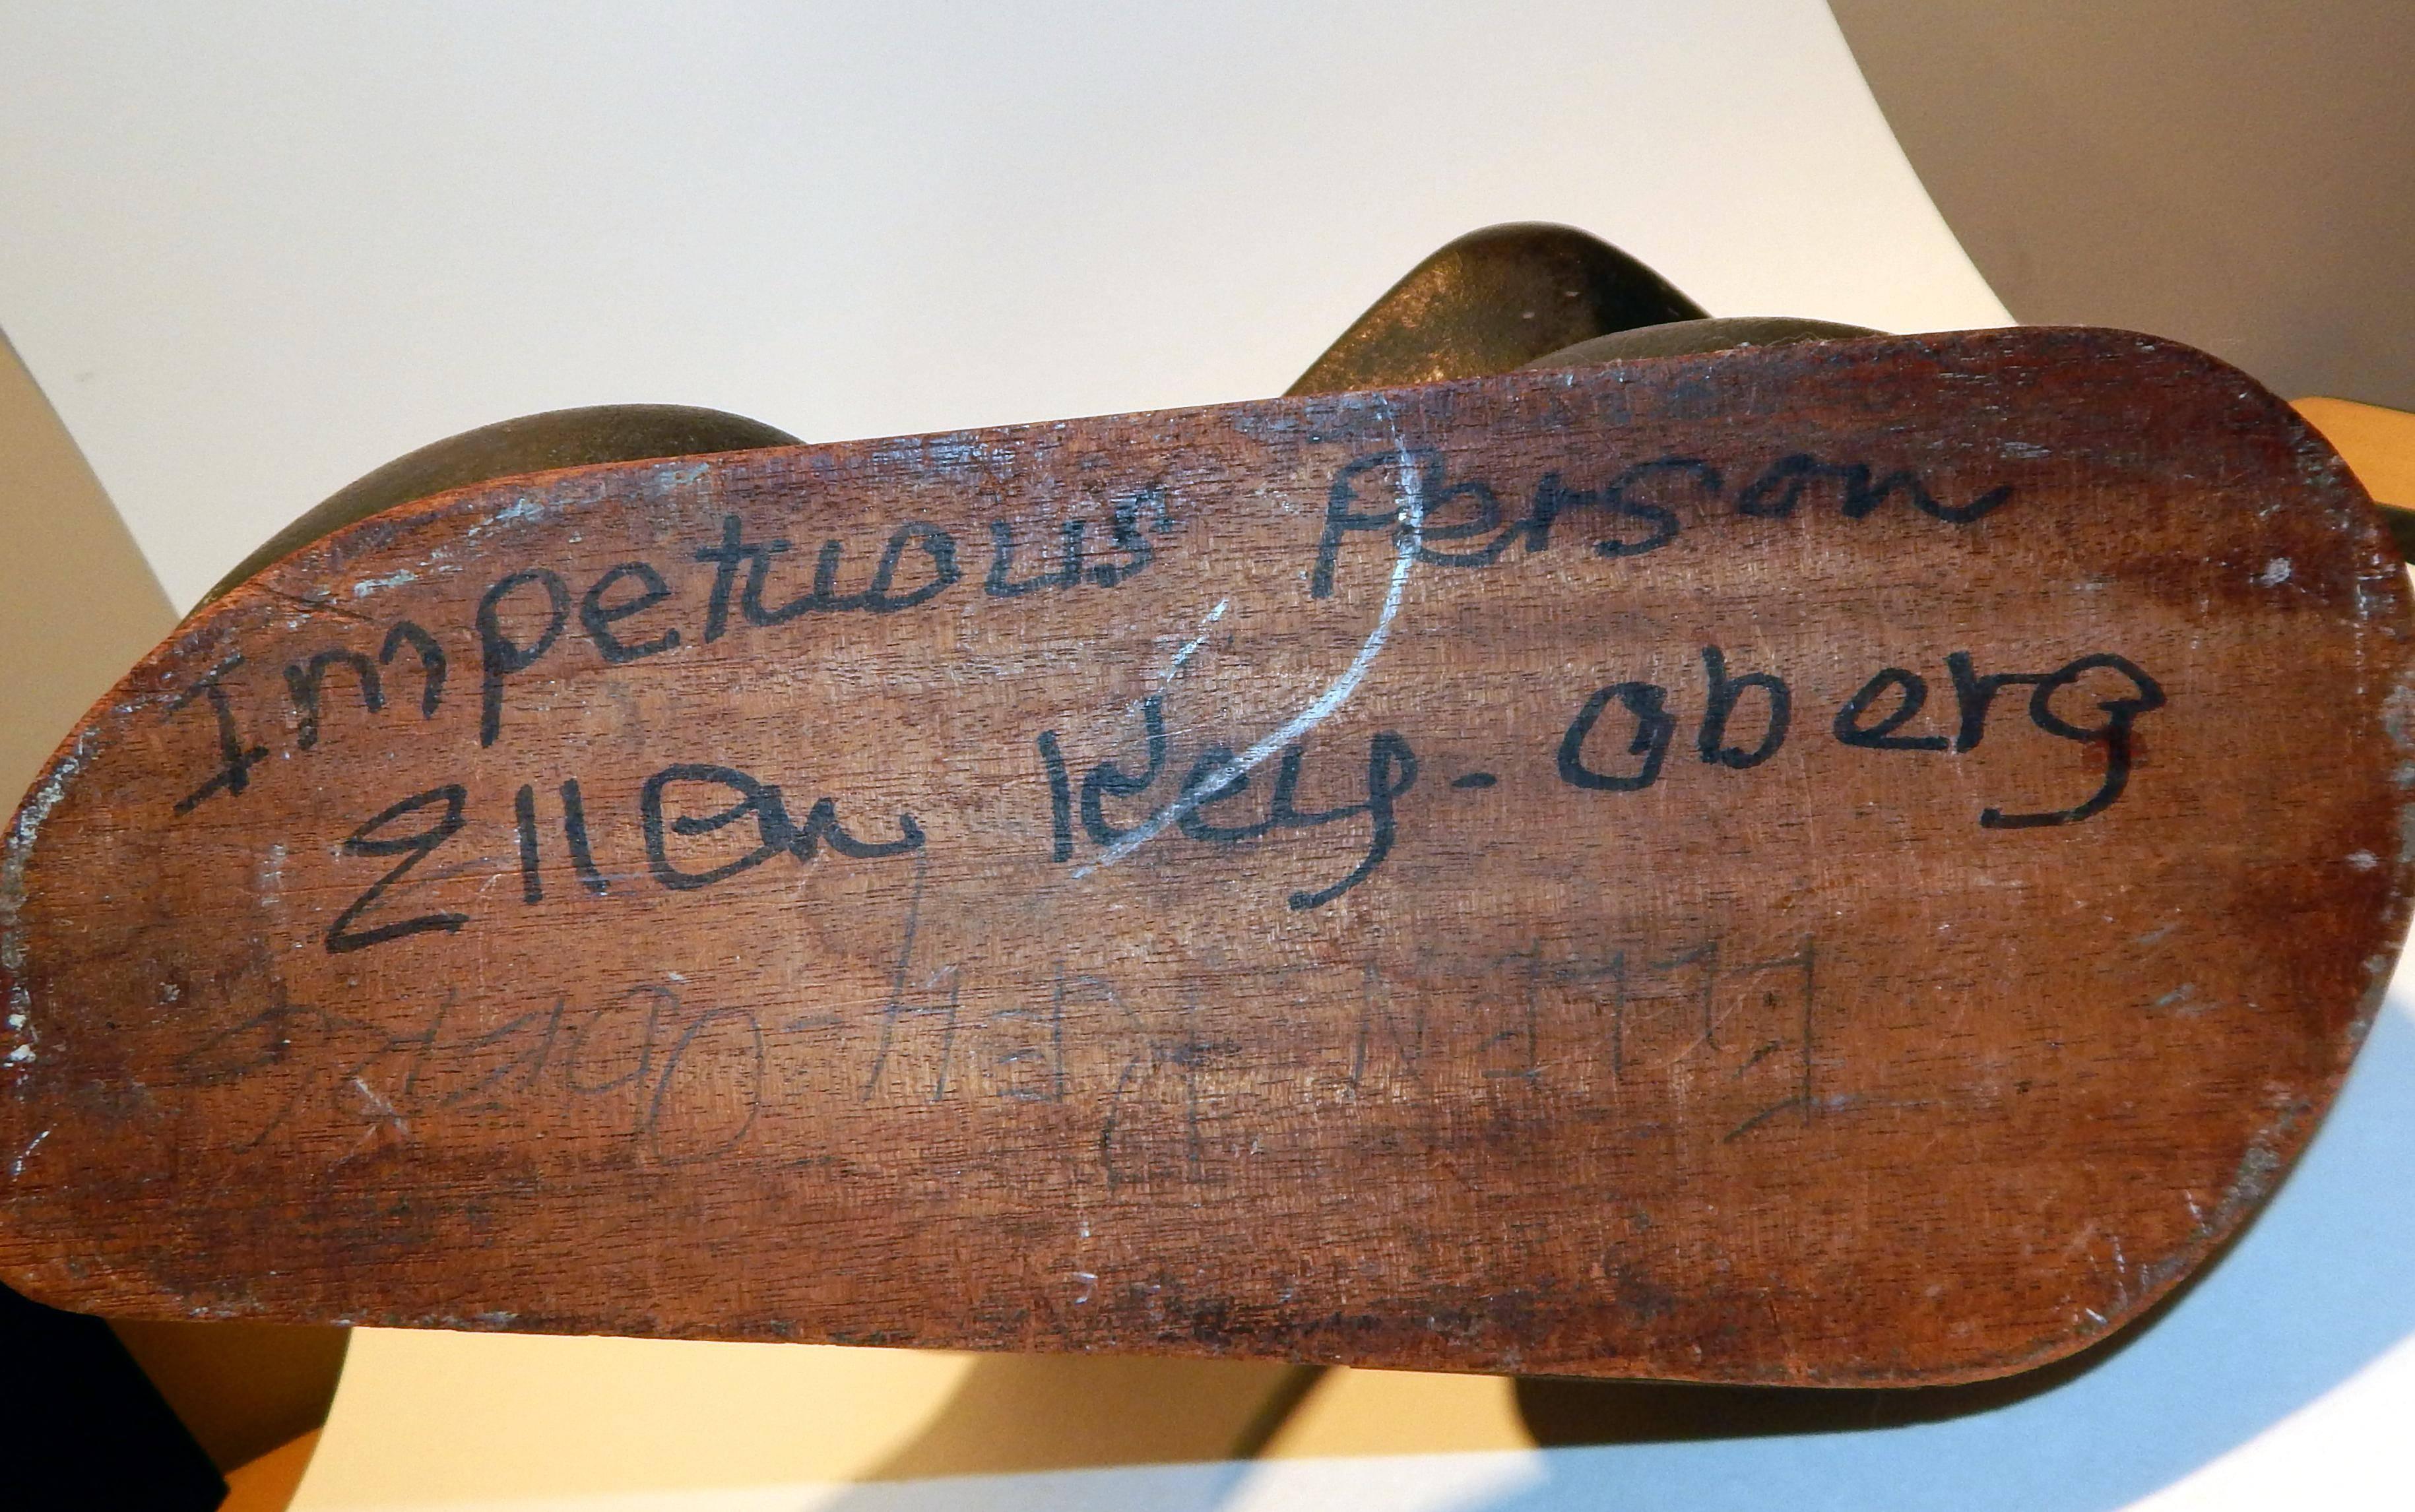 Impetuous Person
Ellen Key-Oberg
ELLEN KEY-OBERG